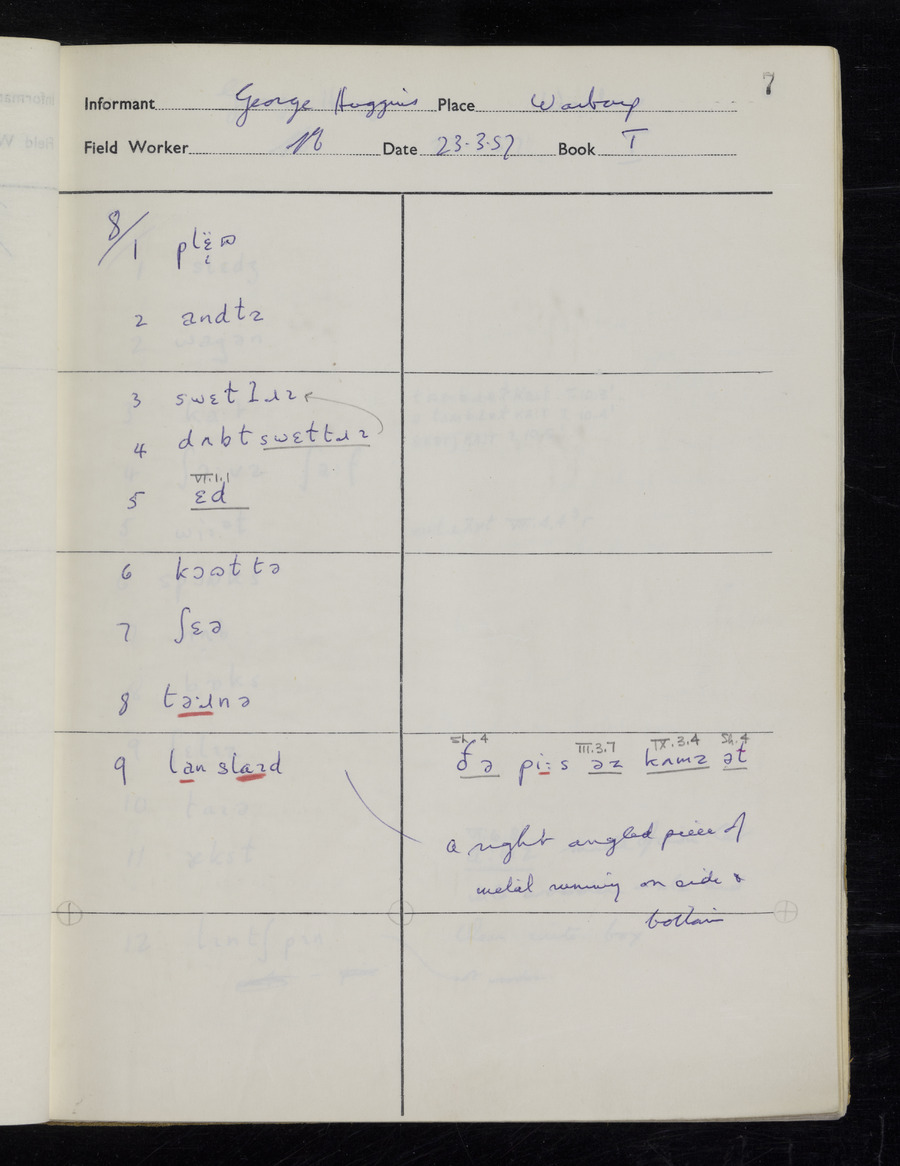 7
Informant George Huggins Place Warborg
Field Worker Date 23.3.57 Book I
8/1 plɛ̈ɷ
2 andtɫ
3 swɛt
4 dʌbt swɛttɹɫ
VI.1.1
5 ɛd
6 kɔɷttə
7 ʃɛə
8 təːɹnə
Sh. 4 III.3.7 IX.3.4 Sh.4
9 lan slaɪd ðə piːs əz kʌmz ət
a right angled piece of
metal running on side &
bottom